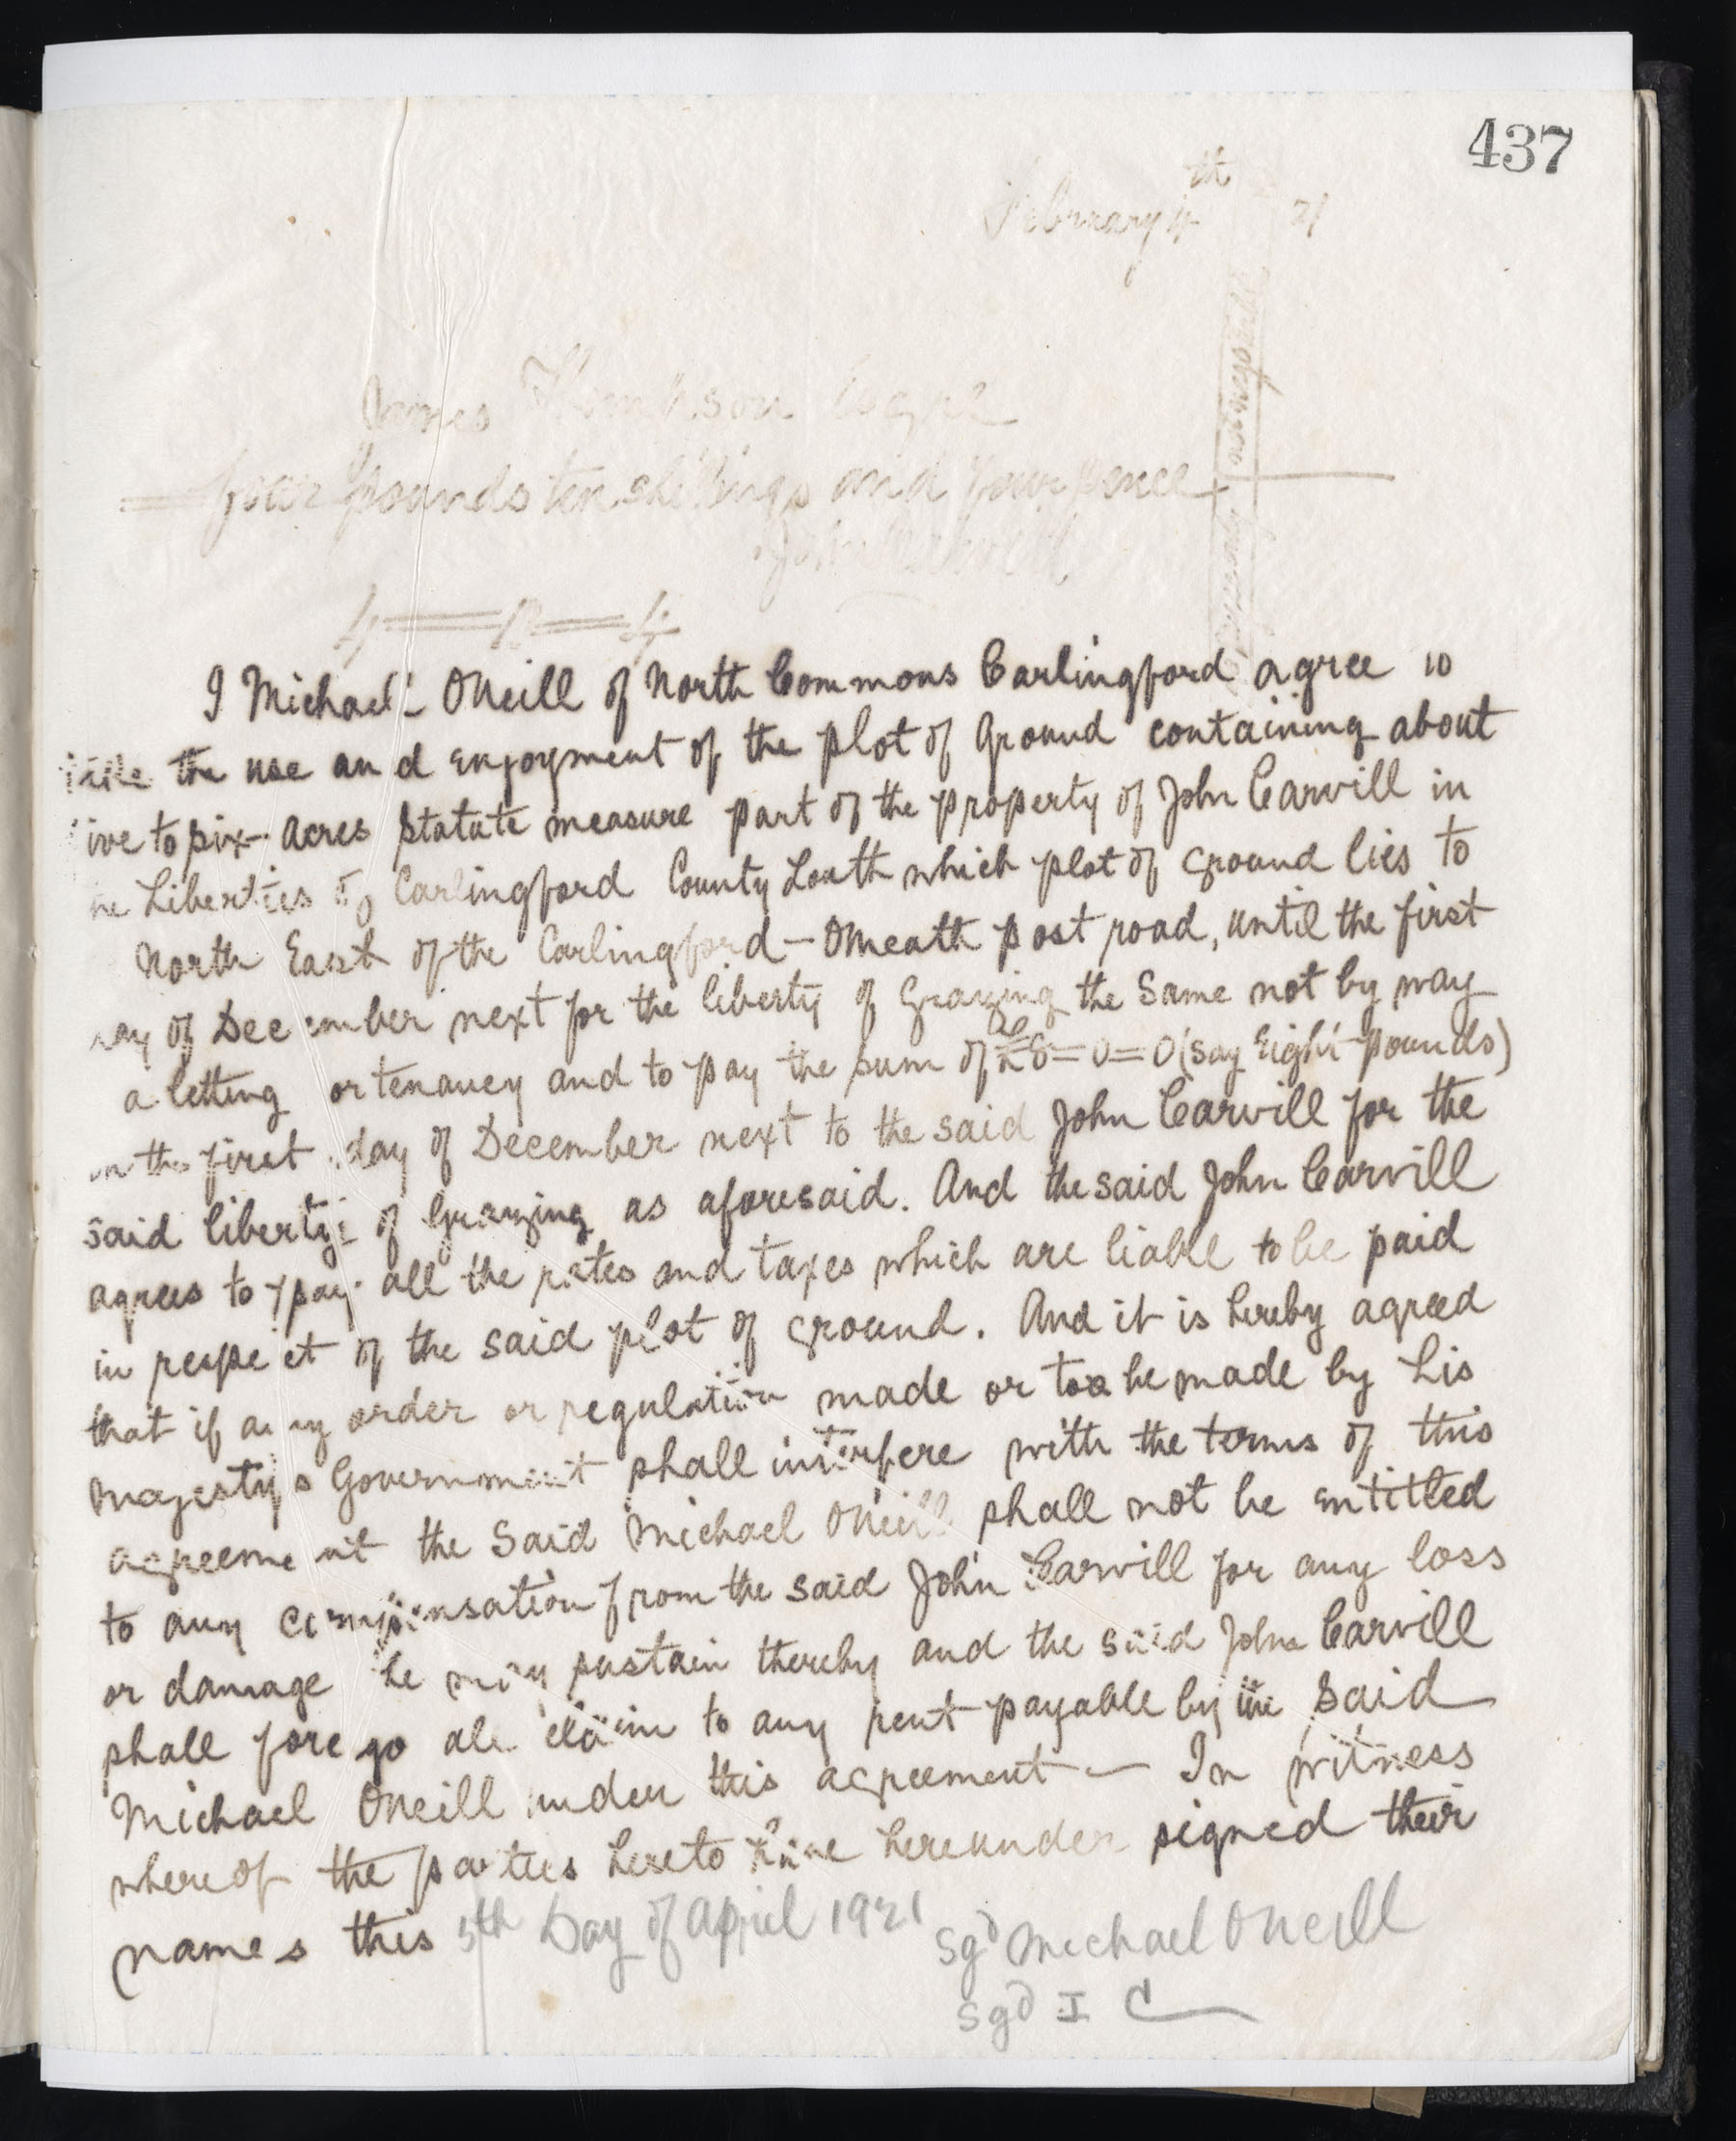 437
February 4th 21
James Thompson Esqre
four pounds ten shillings and four pence
John Carvill
4=10=4
I Michael ONeill of North Commons Carlingford agree to
take the use and enjoyment of the plot of Ground containing about
ive to six Acres statute measure part of the property of John Carvill in
he Liberties of Carlingford County Louth which plot of ground lies to
North East of the Carlingford - Omeath post road, until the first
ay of December next for the liberty of Grazing the Same not by way
a letting or tenancy and to pay the sum of £8=0=0 (say Eight pounds)
on the first day of December next to the said John Carvill for the
said liberty of Grazing as aforesaid. And the said John Carvill
agrees to pay all the rates and taxes which are liable to be paid
in respect of the said plot of ground. And it is hereby agreed
that if any order or regulation made or to be made by His
Majestys Government shall interfere with the terms of this
agreement the Said Michael ONeill shall not be entitled
to any compensation from the said John Carvill for any loss
or damage he may sustain thereby and the said John Carvill
shall forego all claim to any rent payable by the said
Michael ONeill under this agreement — In witness
whereof the parties hereto have hereunder signed their
names this 5th Day of April 1921 Sgd Michael ONeill
Sgd I C